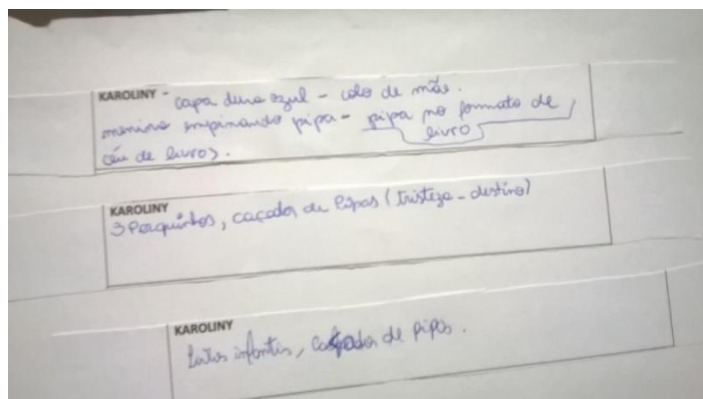 KAROLINY - capa dura azul - colo de mãe.
menino empinando pipa - pipa no formato de livro
céu de livros.
KAROLINY
3 Porquinhos, caçador de Pipas (tristeza - destino)
KAROLINY
infantis, caçador de pipas.